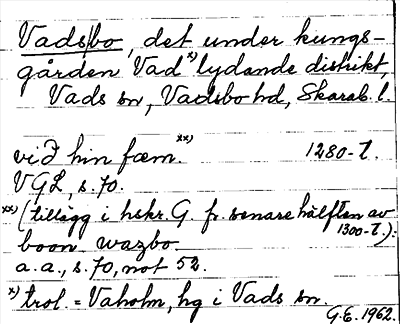 Vads|bo, det under kungs-
gården Vad x) lydande distrikt,
Vads sn, Vadsbo hd, Skarab. l.
við hin fæm. xx) 1280-t.
VGL, s. 70.
xx) (tillägg i hskr. G. fr. senare hälften av 1300-t.):
boon wazbo
a.a., s. 70, not 52.
x) trol. = Vaholm, hg i Vads sn.
G.E. 1962.